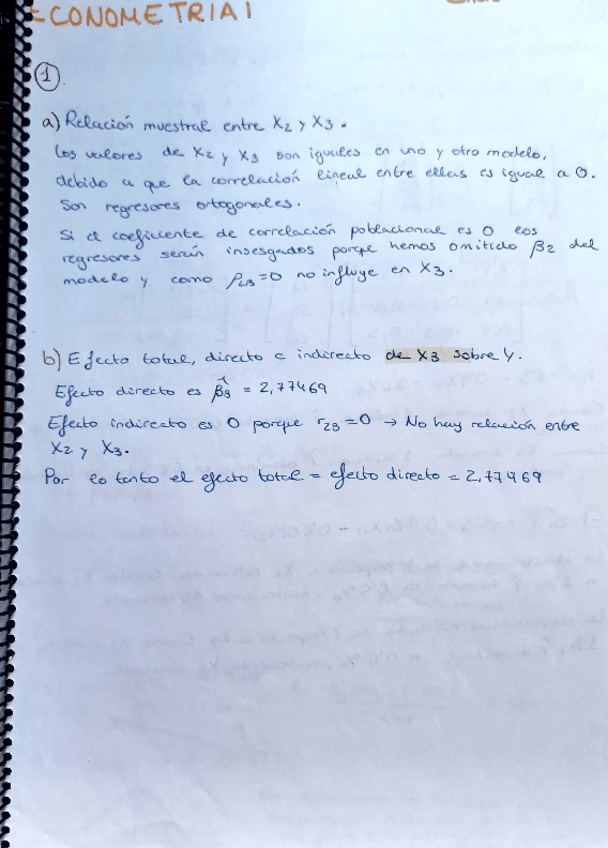 ECONOMETRIA I
1
a) Relación muestral entre X2 y X3.
Los valores de X2 y X3 son iguales en uno y otro modelo,
debido a que la correlación lineal entre ellas es igual a 0.
Son regresores ortogonales.
Si el coeficiente de correlación poblacional es 0 los
regresores serán insesgados porque hemos omitido β2 del
modelo y como ρ23=0 no influye en X3.
b) Efecto total, directo e indirecto de X3 sobre Y.
Efecto directo es β̂3 = 2,77469
Efecto indirecto es 0 porque r23=0 → No hay relación entre
X2 y X3.
Por lo tanto el efecto total = efecto directo = 2,77469